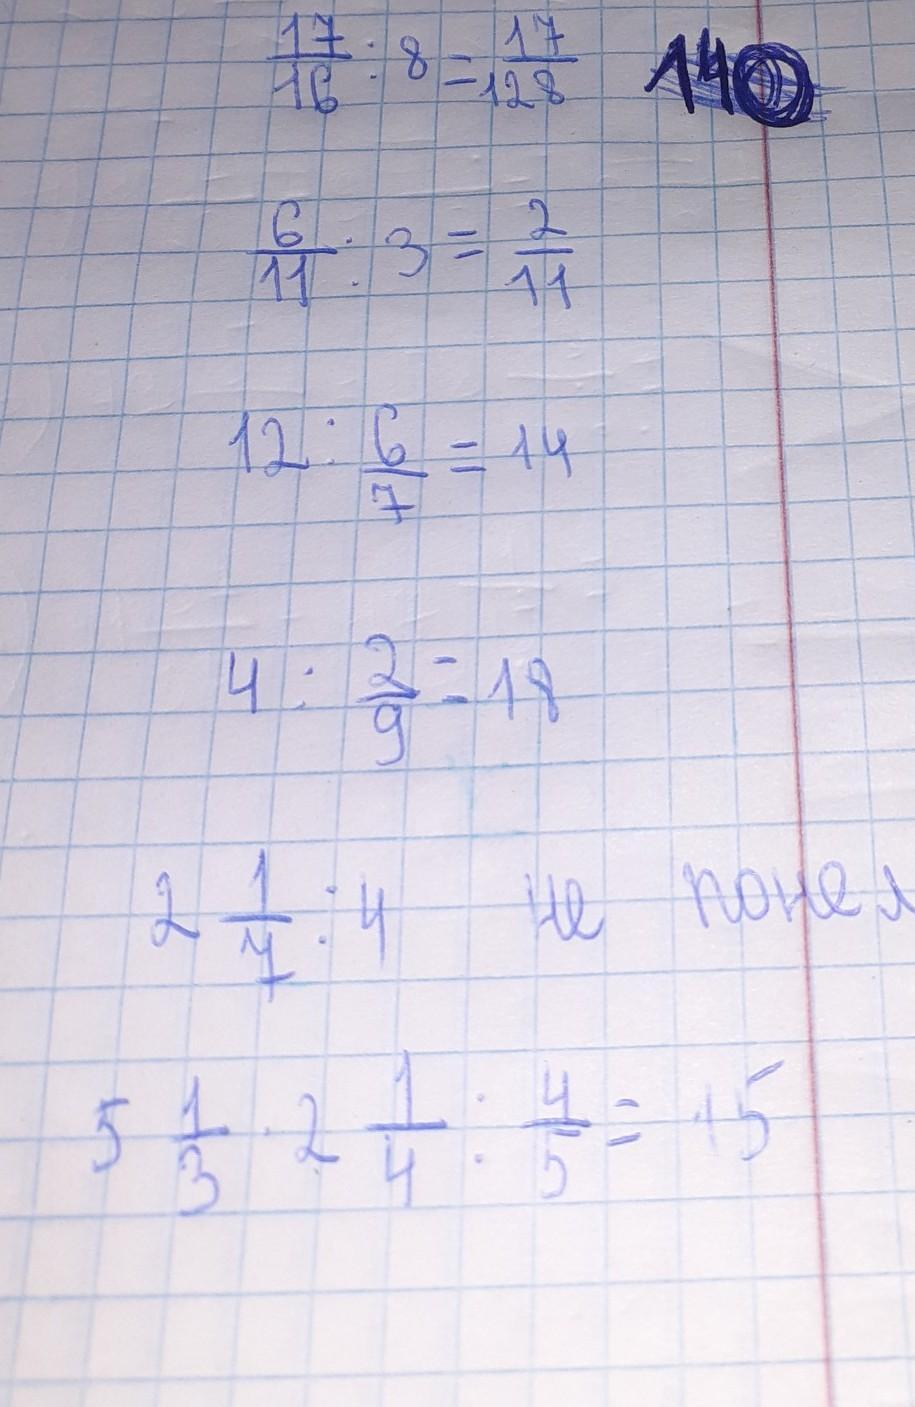 17/16 : 8 = 17/128 140
6/11 : 3 = 2/11
12 : 6/7 = 14
4 : 2/9 = 18
2 1/7 : 4 не понел
5 1/3 · 2 1/4 : 4/5 = 15